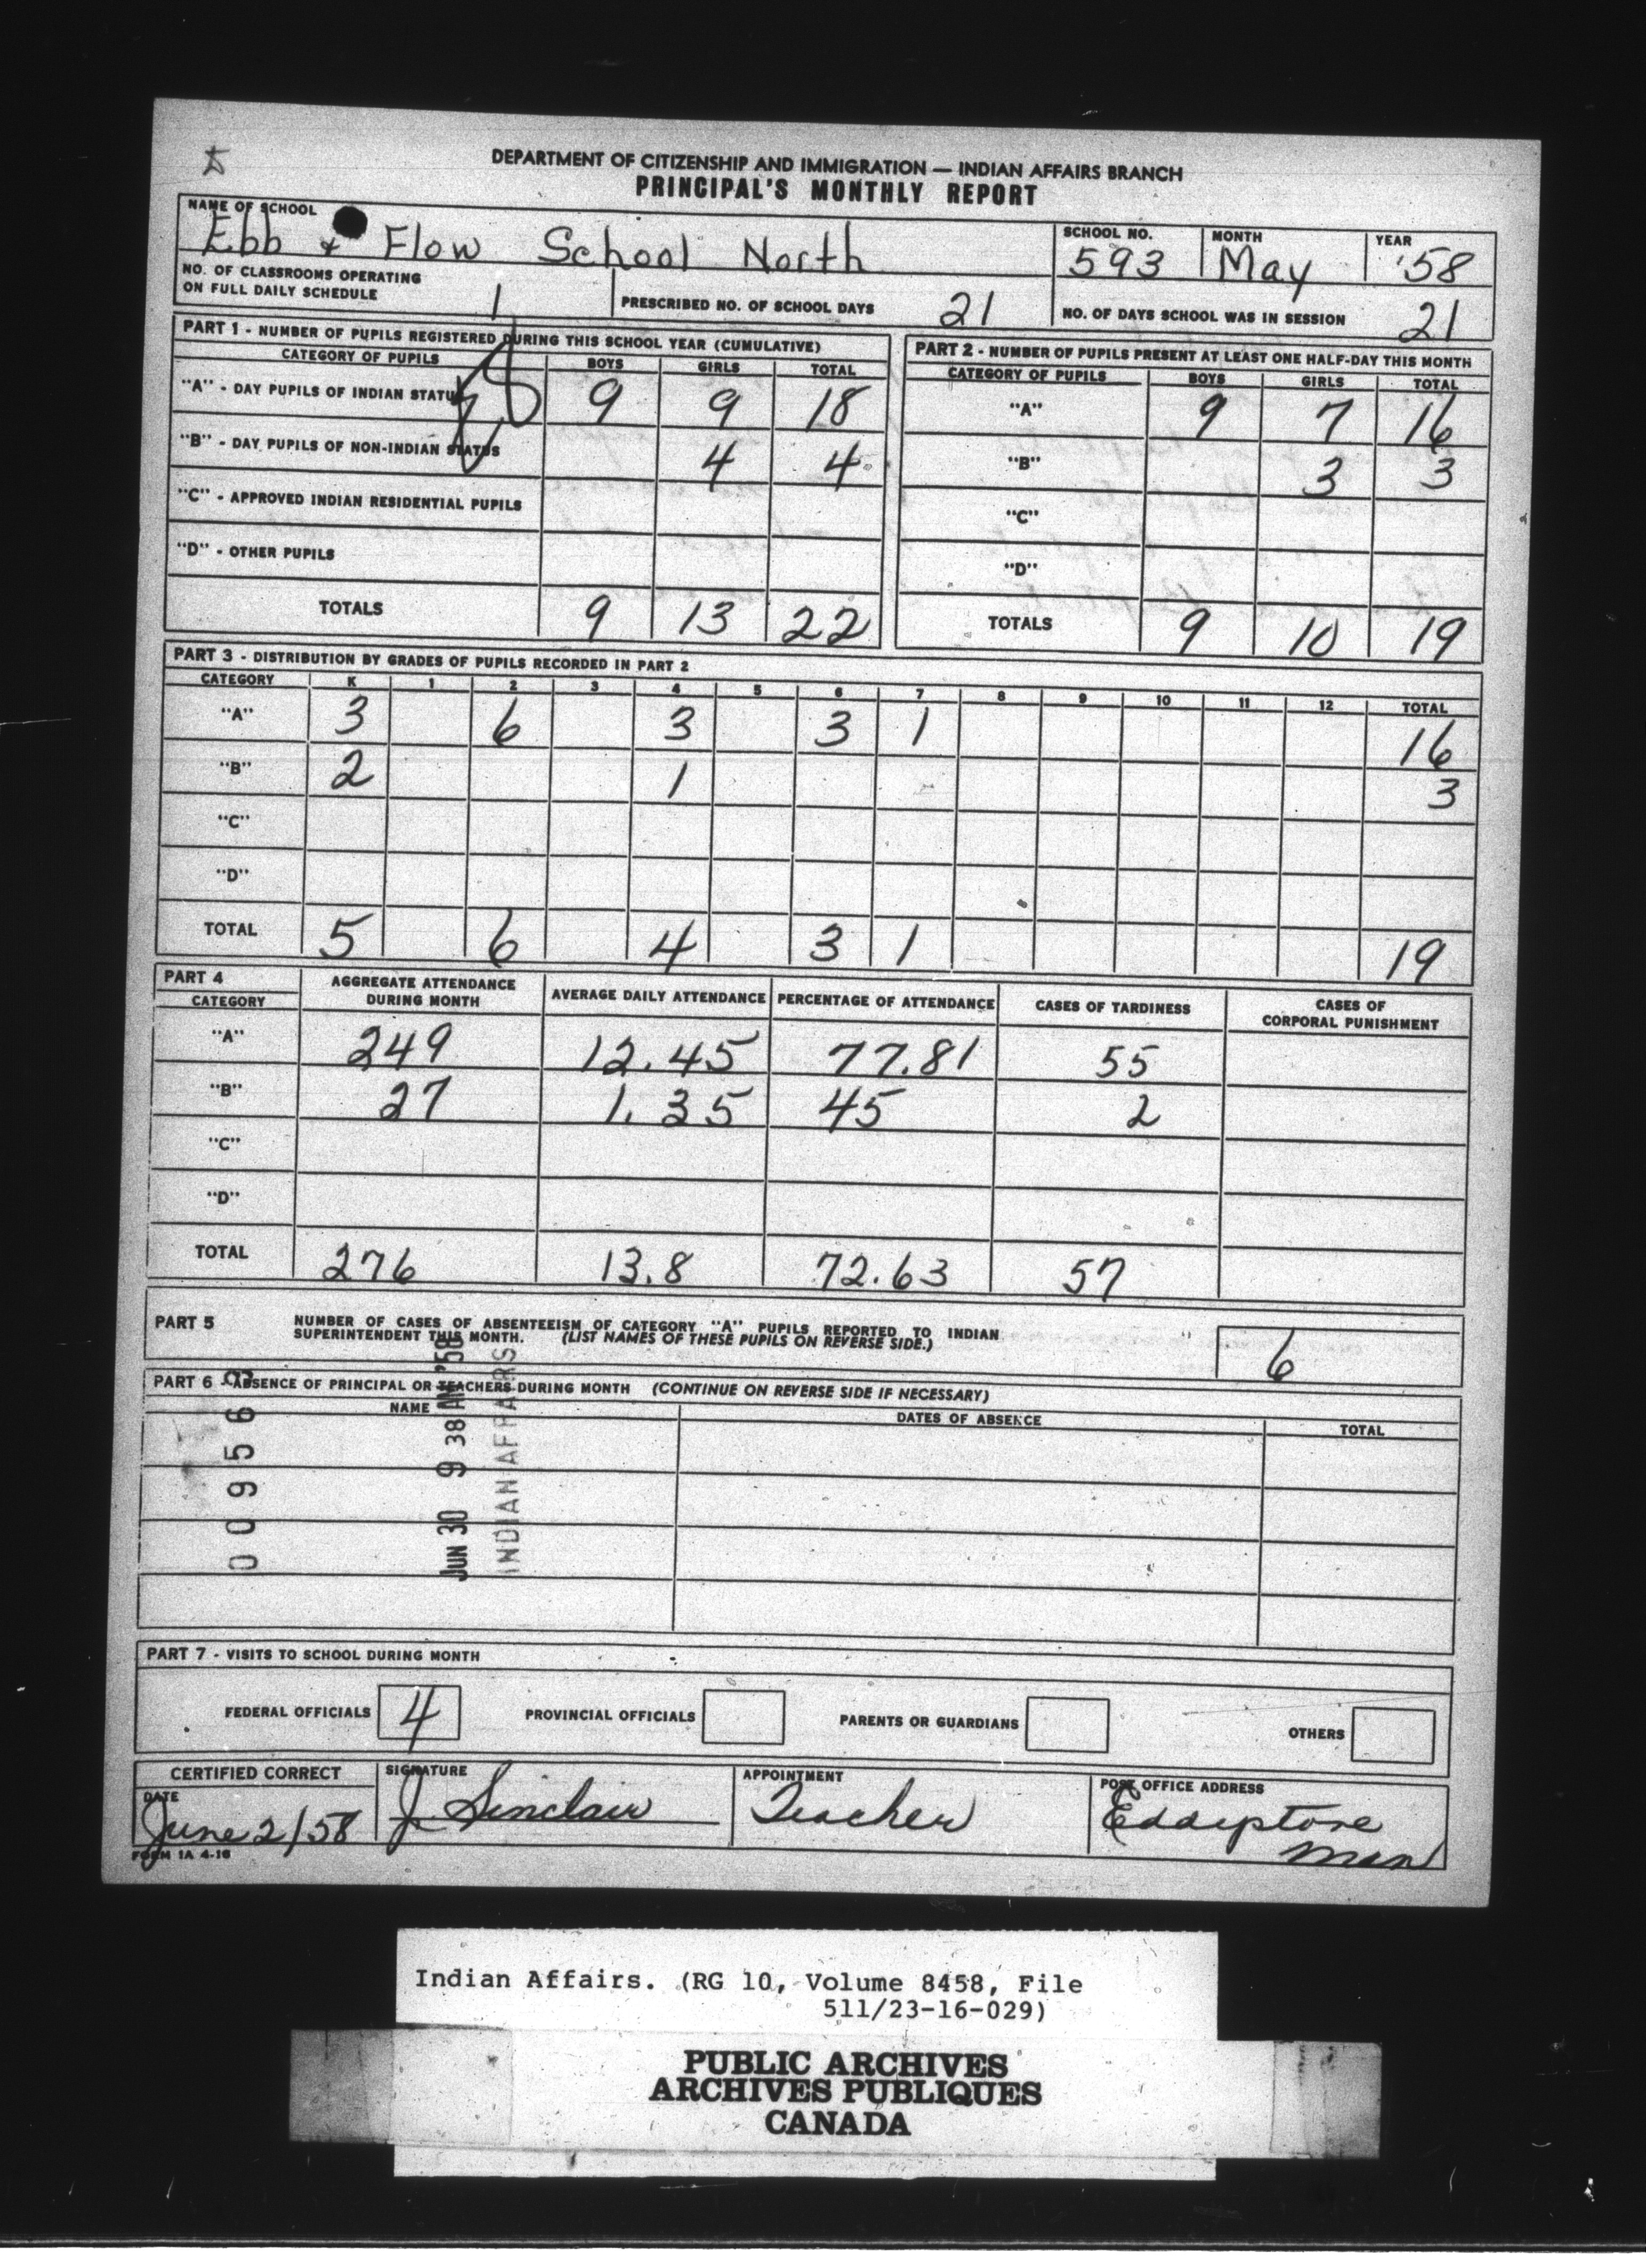 DEPARTMENT OF CITIZENSHIP AND IMMIGRATION — INDIAN AFFAIRS BRANCH
PRINCIPAL'S MONTHLY REPORT
NAME OF SCHOOL Ebb & Flow School North SCHOOL NO. 593 MONTH May YEAR '58
NO. OF CLASSROOMS OPERATING ON FULL DAILY SCHEDULE 1 PRESCRIBED NO. OF SCHOOL DAYS 21 NO. OF DAYS SCHOOL WAS IN SESSION 21
PART 1 - NUMBER OF PUPILS REGISTERED DURING THIS SCHOOL YEAR (CUMULATIVE)
CATEGORY OF PUPILS BOYS GIRLS TOTAL
"A" - DAY PUPILS OF INDIAN STATUS 9 9 18
"B" - DAY PUPILS OF NON-INDIAN STATUS 4 4
"C" - APPROVED INDIAN RESIDENTIAL PUPILS
"D" - OTHER PUPILS
TOTALS 9 13 22
PART 2 - NUMBER OF PUPILS PRESENT AT LEAST ONE HALF-DAY THIS MONTH
CATEGORY OF PUPILS BOYS GIRLS TOTAL
"A" 9 7 16
"B" 3 3
"C"
"D"
TOTALS 9 10 19
PART 3 - DISTRIBUTION BY GRADES OF PUPILS RECORDED IN PART 2
CATEGORY K 1 2 3 4 5 6 7 8 9 10 11 12 TOTAL
"A" 3 6 3 3 1 16
"B" 2 1 3
"C"
"D"
TOTAL 5 6 4 3 1 19
PART 4
CATEGORY AGGREGATE ATTENDANCE DURING MONTH AVERAGE DAILY ATTENDANCE PERCENTAGE OF ATTENDANCE CASES OF TARDINESS CASES OF CORPORAL PUNISHMENT
"A" 249 12.45 77.81 55
"B" 27 1.35 45 2
"C"
"D"
TOTAL 276 13.8 72.63 57
PART 5 NUMBER OF CASES OF ABSENTEEISM OF CATEGORY "A" PUPILS REPORTED TO INDIAN
SUPERINTENDENT THIS MONTH. (LIST NAMES OF THESE PUPILS ON REVERSE SIDE.) 6
PART 6 - ABSENCE OF PRINCIPAL OR TEACHERS DURING MONTH (CONTINUE ON REVERSE SIDE IF NECESSARY)
NAME DATES OF ABSENCE TOTAL
JUN 30 9 38 AM '58
INDIAN AFFAIRS
PART 7 - VISITS TO SCHOOL DURING MONTH
FEDERAL OFFICIALS 4 PROVINCIAL OFFICIALS PARENTS OR GUARDIANS OTHERS
CERTIFIED CORRECT SIGNATURE APPOINTMENT POST OFFICE ADDRESS
DATE
June 2/58 J. Sinclair Teacher Eddystone
Man
FORM 1A 4-16
Indian Affairs. (RG 10, Volume 8458, File
511/23-16-029)
PUBLIC ARCHIVES
ARCHIVES PUBLIQUES
CANADA